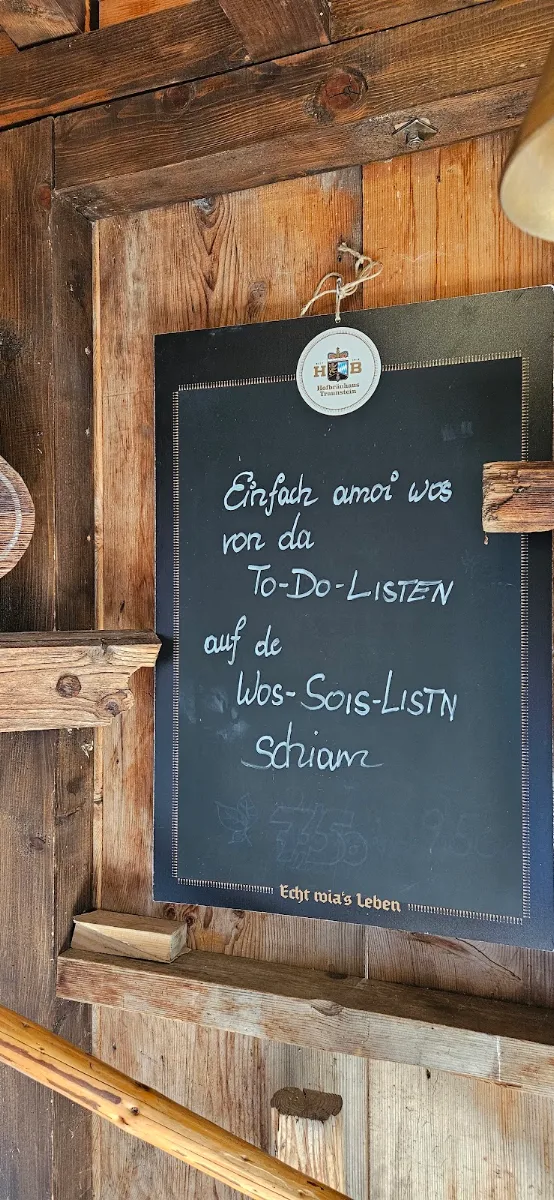 H B
Hofbräuhaus
Traunstein
Einfach amoi wos
von da
TO-DO-LISTEN
auf de
WOS-SOIS-LISTN
schiam
Echt wia's Leben